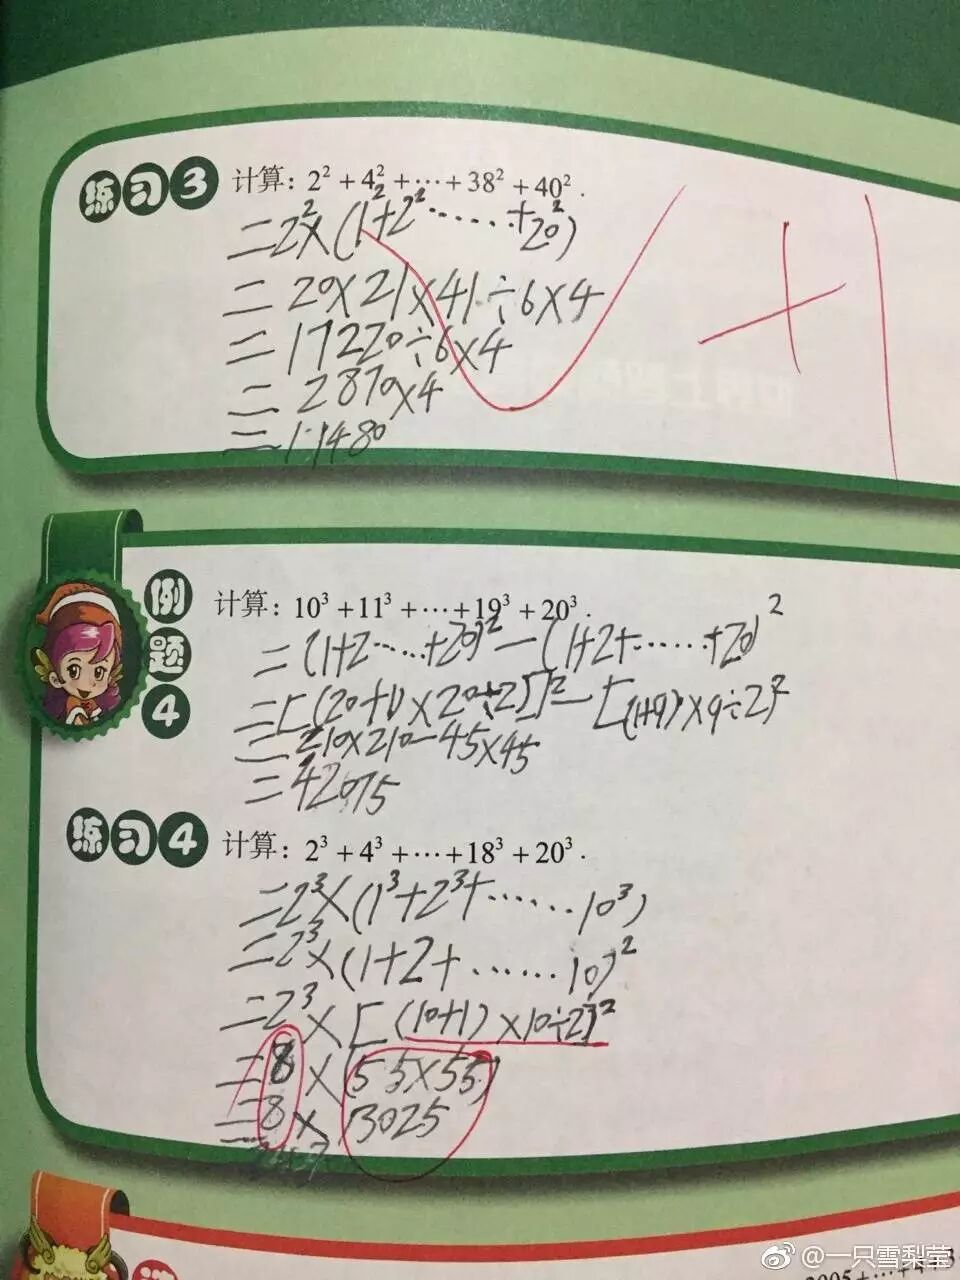 练习3 计算：2² + 4² + ⋯ + 38² + 40² .
=2²×(1²+2²……+20²)
=20×21×41÷6×4
=17220÷6×4
=2870×4
=11480
+1
例题4 计算：10³ + 11³ + ⋯ + 19³ + 20³ .
=(1+2……+20)²-(1+2+……+20)²
=[(20+1)×20÷2]²-[(1+9)×9÷2]²
=210×210-45×45
=42075
练习4 计算：2³ + 4³ + ⋯ + 18³ + 20³ .
=2³×(1³+2³+……10³)
=2³×(1+2+……10)²
=2³×[(10+1)×10÷2]²
=8×(55×55)
=8×3025
@一只雪梨莹